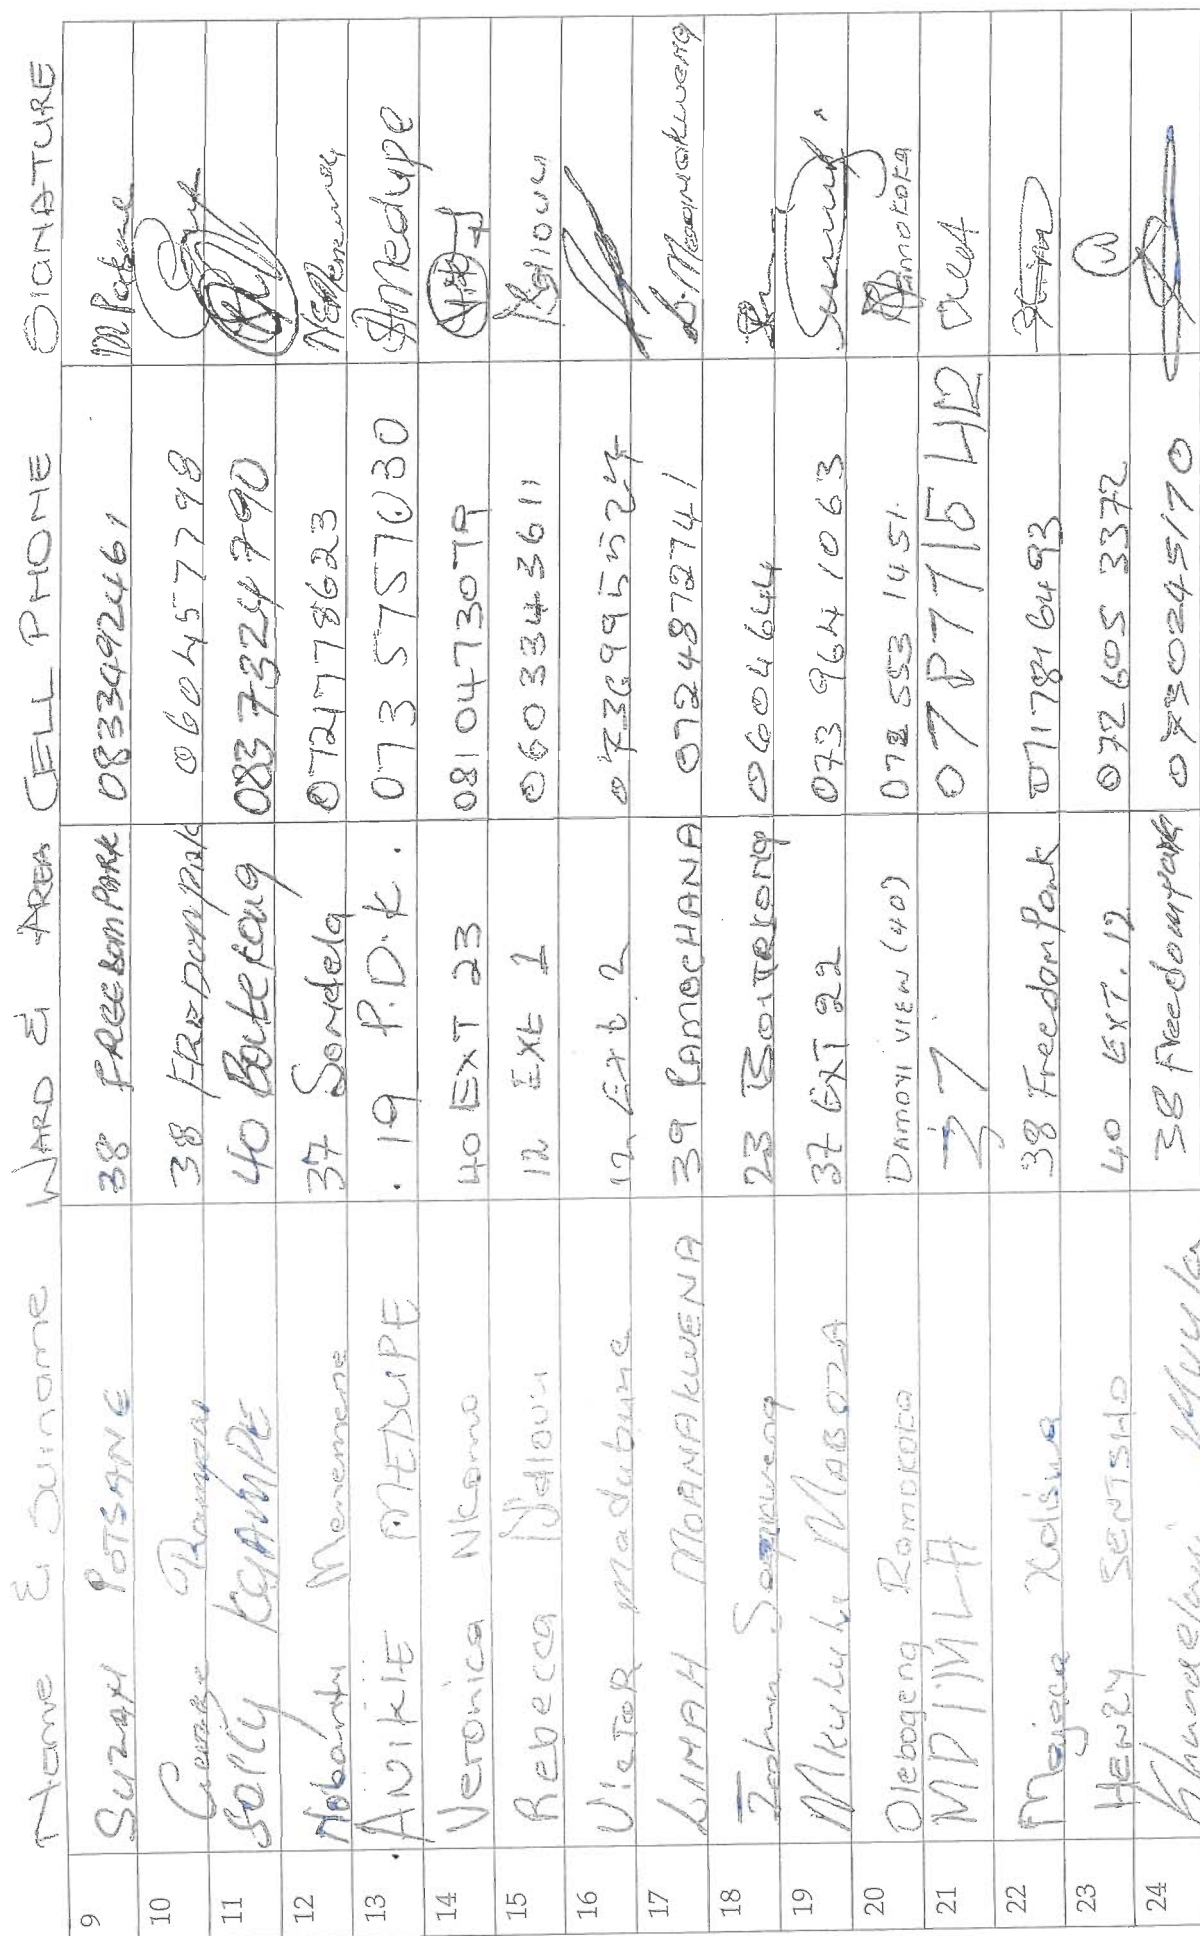 Name & Surname WARD & AREA CELL PHONE SIGNATURE
9 SUZAN POTSANE 38 FREEDOMPARK 0833492461
10 George 38 FREDOMPARK 0604577798
11 SOLLY KGAMPE 40 Boitekong 0837324790
12 Nobantu Menemene 37 Sondela 0721778623
13 ANIKIE MEDUPE 19 P.D.K. 073 5757030 Amedupe
14 Veronica Nkomo 40 EXT 23 0810473079
15 Rebecca Ndlovu 12 EXt 1 0603343611
16 VICTOR Madubune 12 Ext 2 0736995524
17 LINAH MOANAKWENA 39 RAMOCHANA 0724872741 L.Moanakwena
18 23 BOITEKONG 0604644
19 Nkululu MABOZA 37 EXT 22 073 964 1063
20 Olebogeng Ramokoka DAMORI VIEW (40) 078 553 1451 Ramokoka
21 MDIMLA 37 078771542
22 Majaca Xoliswa 38 Freedom Park 0717816493
23 HENRY SENTSHO 40 EXT. 12 072 605 3372
24 38 Freedompark 0730245170